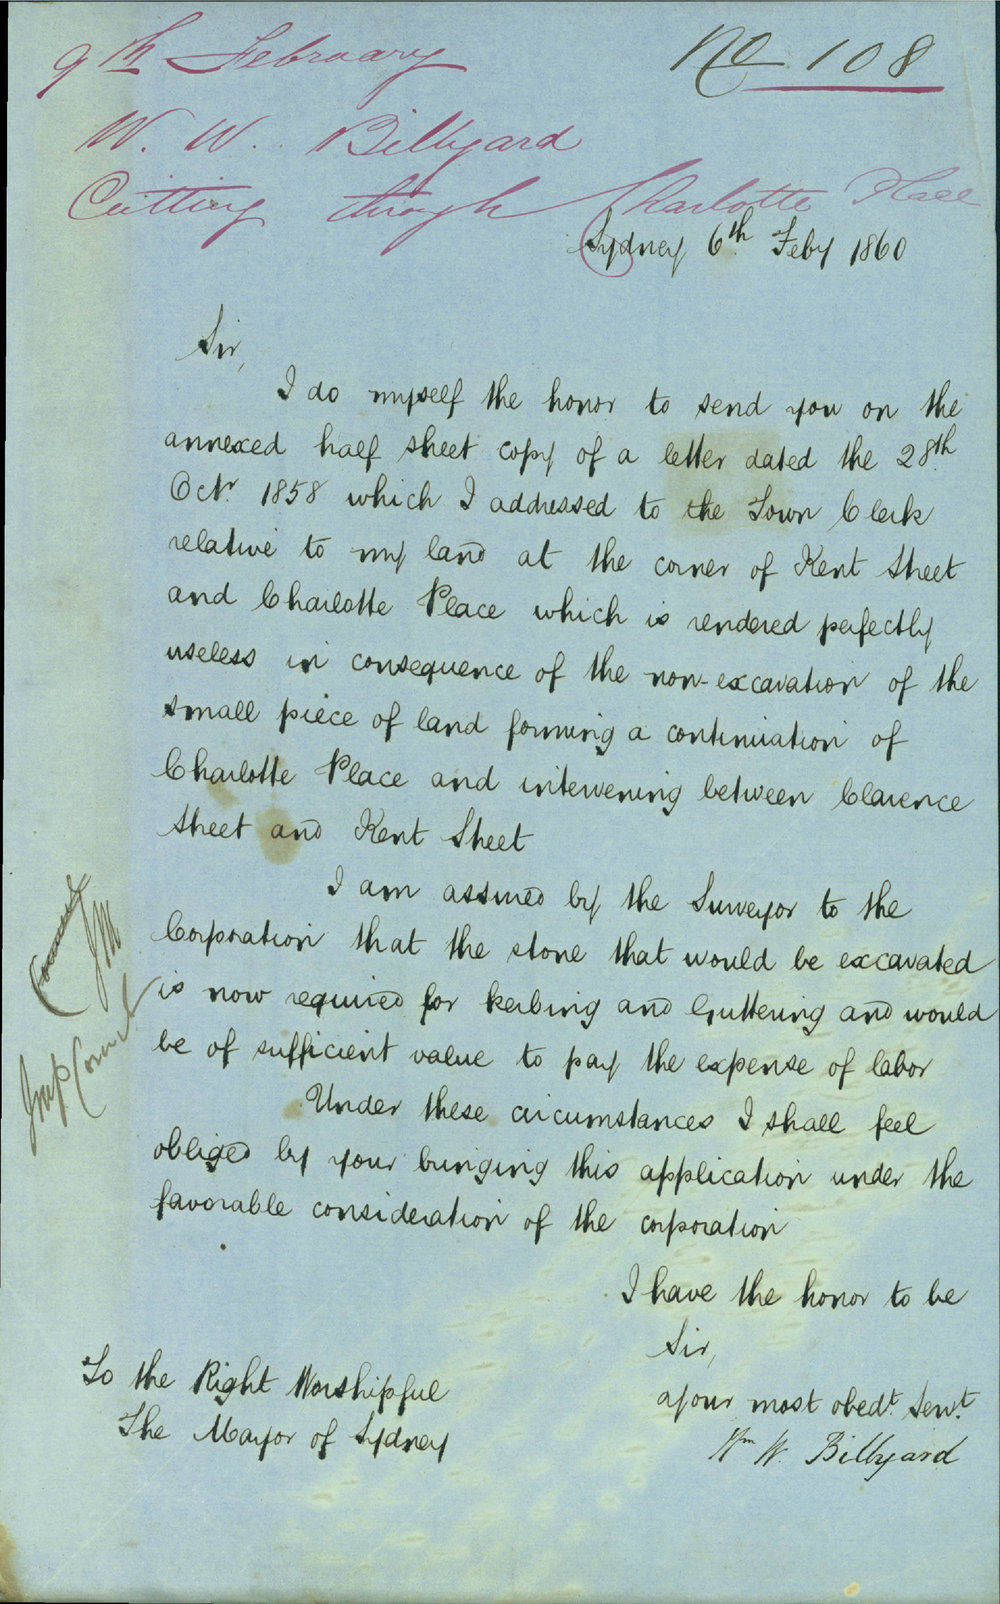 9th February
No 108
W. W. Billyard
Cutting through Charlotte Place
Sydney 6th Feby 1860
Sir,
I do myself the honor to send you on the
annexed half sheet copy of a letter dated the 28th
Octr 1858 which I addressed to the Town Clerk
relative to my land at the corner of Kent Street
and Charlotte Place which is rendered perfectly
useless in consequence of the non-excavation of the
small piece of land forming a continuation of
Charlotte Place and intervening between Clarence
Street and Kent Street
I am assured by the Surveyor to the
Corporation that the stone that would be excavated
is now required for kerbing and Guttering and would
be of sufficient value to pay the expense of labor
Under these circumstances I shall feel
obliged by your bringing this application under the
favorable consideration of the corporation
I have the honor to be
Sir,
your most obedt. Servt.
Wm W. Billyard
To the Right Worshipful
The Mayor of Sydney